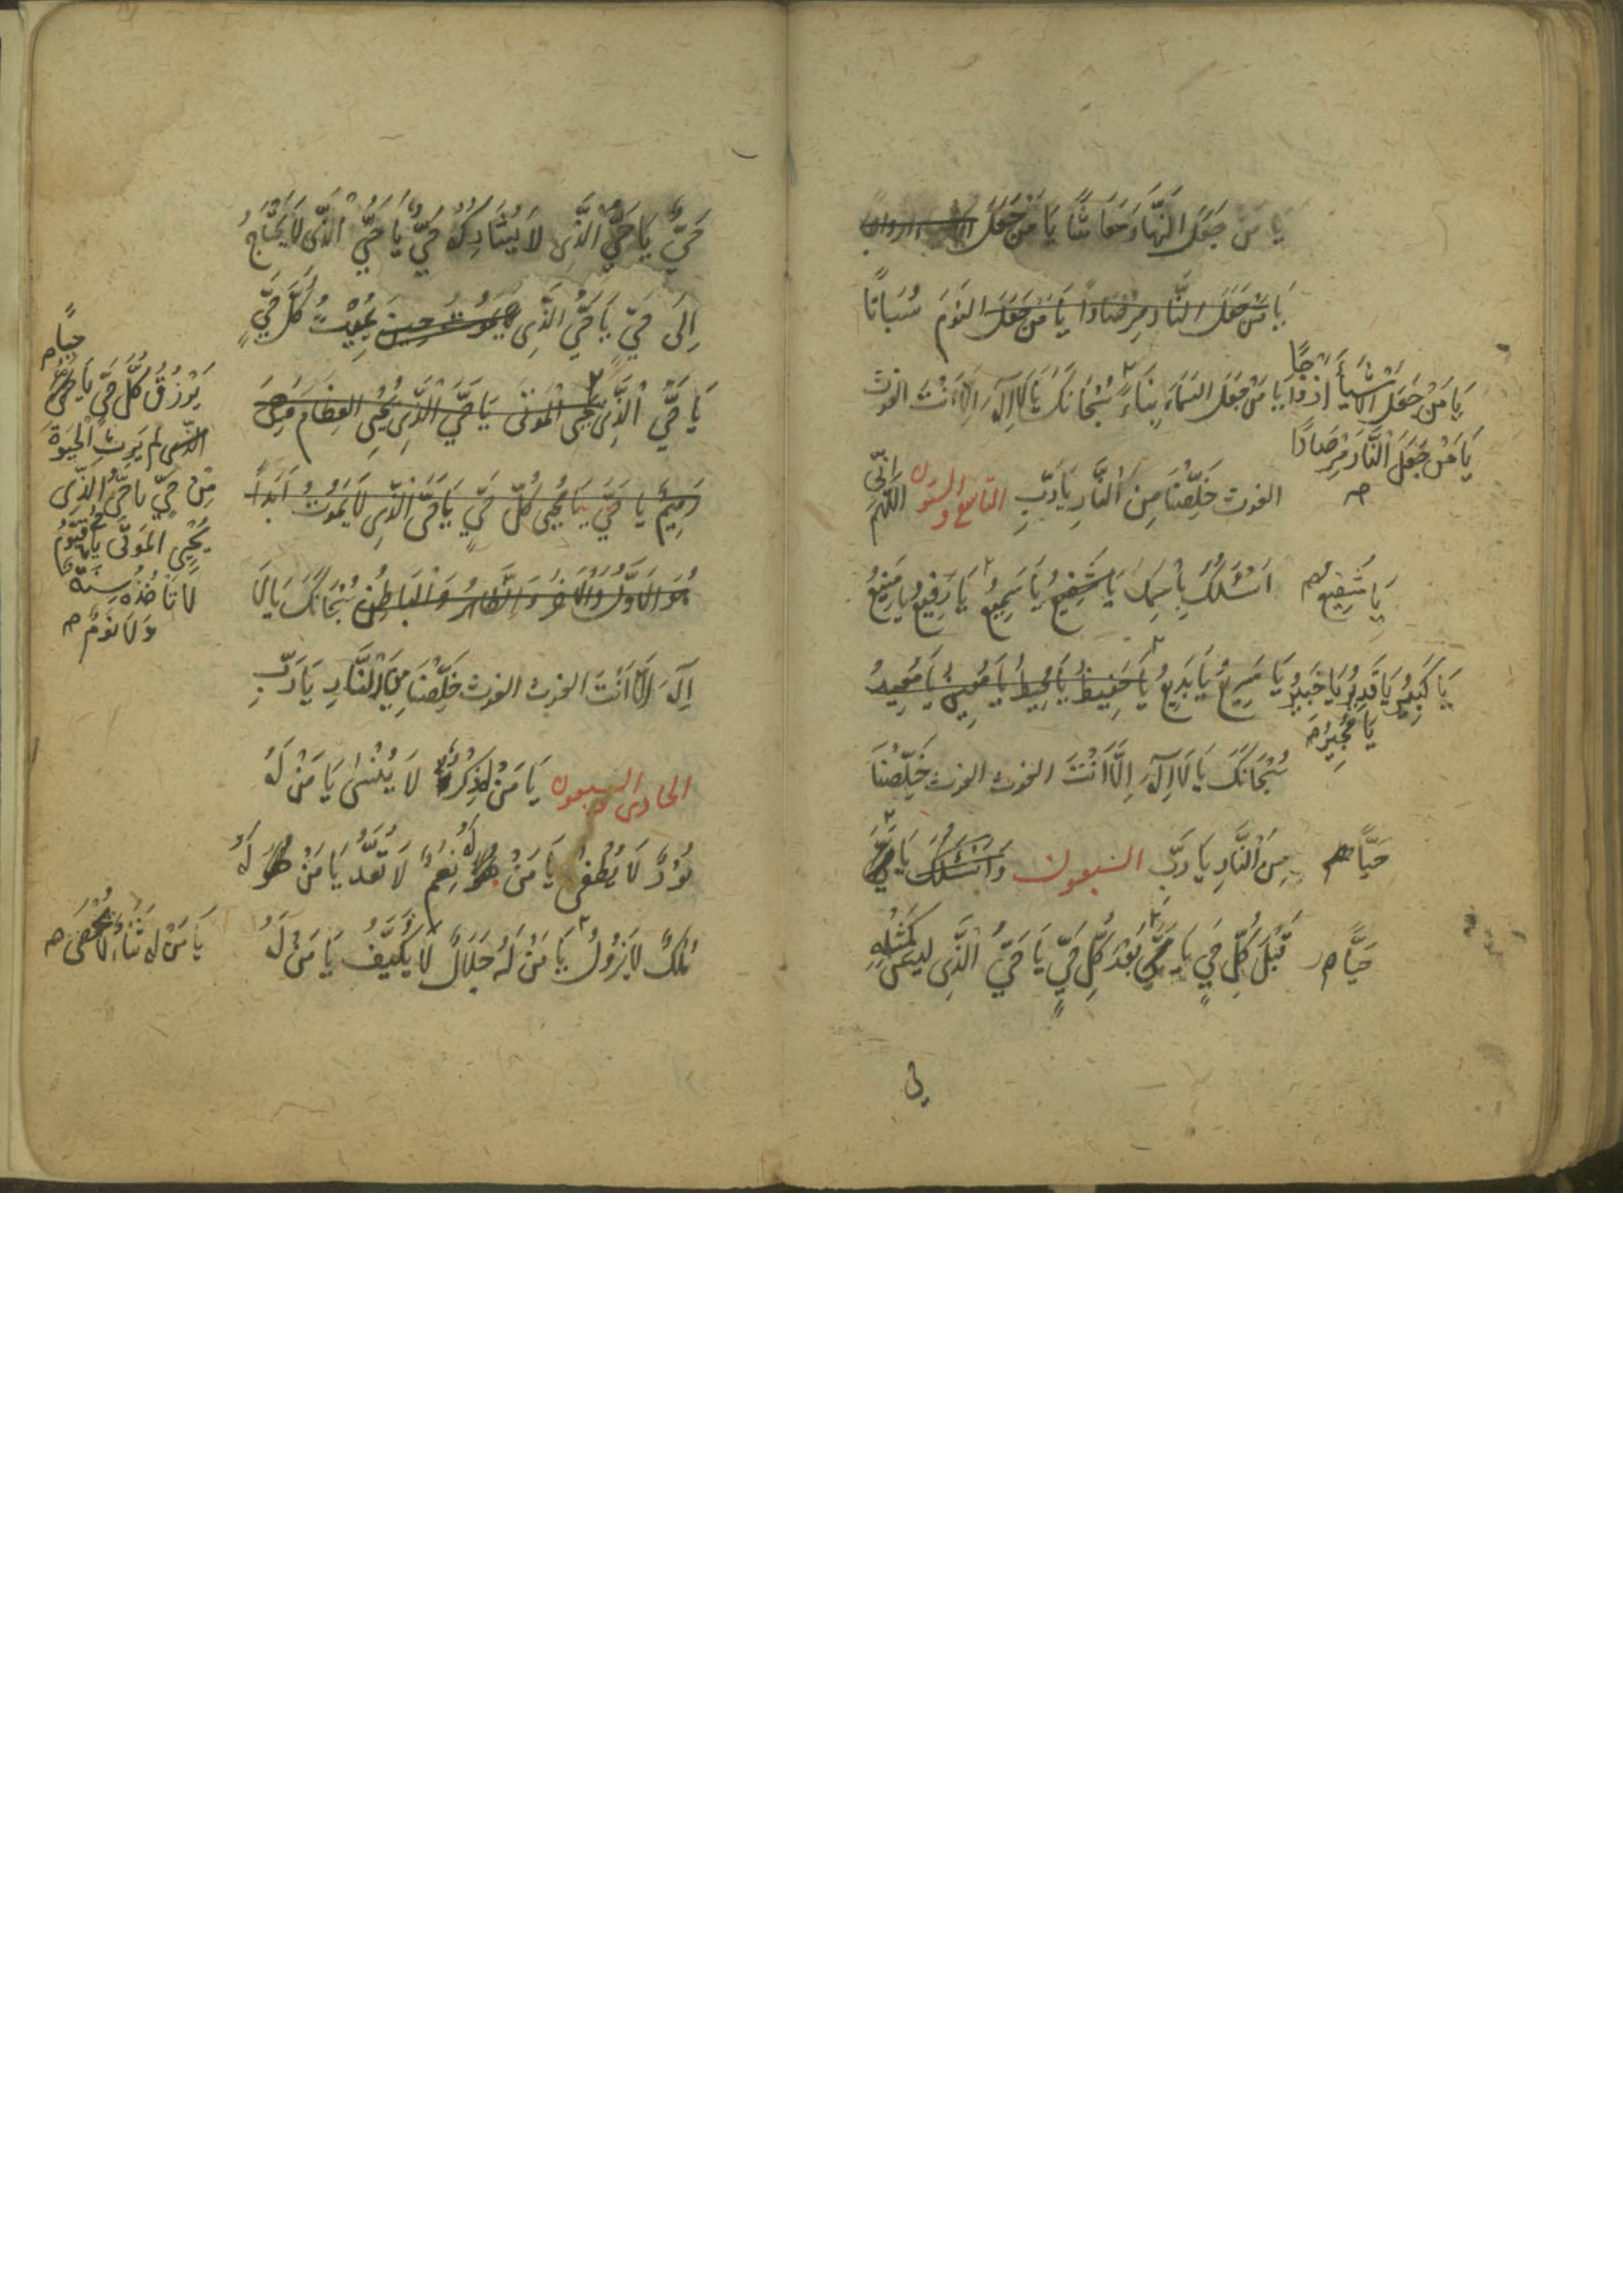 يَا مَن جَعَلَ النَّهَارَ مَعَاشًا يَا مَنْ جَعَلَ
يَا مَنْ جَعَلَ النَّارَ مِرْصَادًا يَا مَنْ جَعَلَ النَّوْمَ سُبَاتًا
يَا مَنْ جَعَلَ الْاَشْيَاءَ اَزْوَاجًا
يَا مَنْ جَعَلَ السَّمَاءَ بِنَاءً سُبْحَانَكَ يَا لَا اِلَهَ اِلَّا اَنْتَ الغوث
يَا مَنْ جَعَلَ النَّارَ مِرْصَادًا صح
الغوث خَلِّصْنَا مِنَ النَّارِ يَا رَبِّ التاسع و الستون اَللّهُمَّ اِنِّي
يَا شَفِيعُ
اَسْئَلُكَ بِاسْمِكَ يَا شَفِيعُ يَا سَمِيعُ يَا رَفِيعُ يَا مَنِيعُ
يَا كَبِيرُ يَا قَدِيرُ يَا خَبِيرُ يَا سَرِيعُ يَا بَدِيعُ يَا حَفِيظُ يَا مُحِيطُ يَا مُعِيدُ
يَا مُجِيرُ صح
سُبْحَانَكَ يَا لَا اِلَهَ اِلَّا اَنْتَ الغوث الغوث خَلِّصْنَا
حَيًّا
مِنَ النَّارِ يَا رَبِّ السبعون وَ اَسْئَلُكَ يَا
حَيًّا
قَبْلَ كُلِّ حَيٍّ يَا حَيُّ بَعْدَ كُلِّ حَيٍّ يَا حَيُّ الَّذِي لَيْسَ كَمِثْلِهِ
حَيٌّ يَا حَيُّ الَّذِي لَا يُشَارِكُهُ حَيٌّ يَا حَيُّ الَّذِي لَا يَحْتَاجُ
اِلَى حَيٍّ يَا حَيُّ الَّذِي يَمُوتُ حِينَ يُمِيْتُ كُلَّ حَيٍّ
يَا حَيُّ الَّذِي يُحْيِي الْمَوْتَى يَا حَيُّ الَّذِي يُحْيِي الْعِظَامَ
رَمِيمٌ يَا حَيُّ يَا مُحْيِيَ كُلِّ حَيٍّ يَا حَيُّ الَّذِي لَا يَمُوتُ اَبَدًا
هُوَ الْاَوَّلُ وَالْاٰخِرُ وَ الظَّاهِرُ وَ الْبَاطِنُ سُبْحَانَكَ يَا لَا
اِلَهَ اِلَّا اَنْتَ الغوث الغوث خَلِّصْنَا مِنَ النَّارِ يَا رَبِّ
الحادى السبعون يَا مَنْ لَهُ ذِكْرٌ لَا يُنْسٰى يَا مَنْ لَهُ
نُورٌ لَا يُطْفٰى يَا مَنْ لَهُ نِعَمٌ لَا تُعَدُّ يَا مَنْ لَهُ
مُلْكٌ لَا يَزُولُ يَا مَنْ لَهُ جَلَالٌ لَا يُكَيَّفُ يَا مَنْ لَهُ
حيا
يَرْزُقُ كُلَّ حَيٍّ يَا حَيُّ
الَّذِي لم يَرِثِ الْحَيٰوةَ
مِنْ حَيٍّ يا حَيُّ الَّذِي
يُحْيِي الْمَوْتَى يَا قَيُّومُ
لَا تَأْخُذُهُ سِنَةٌ
وَ لَا نَوْمٌ صح
يَا مَنْ لَهُ ثَنَاءٌ لَا يُحْصَى صح